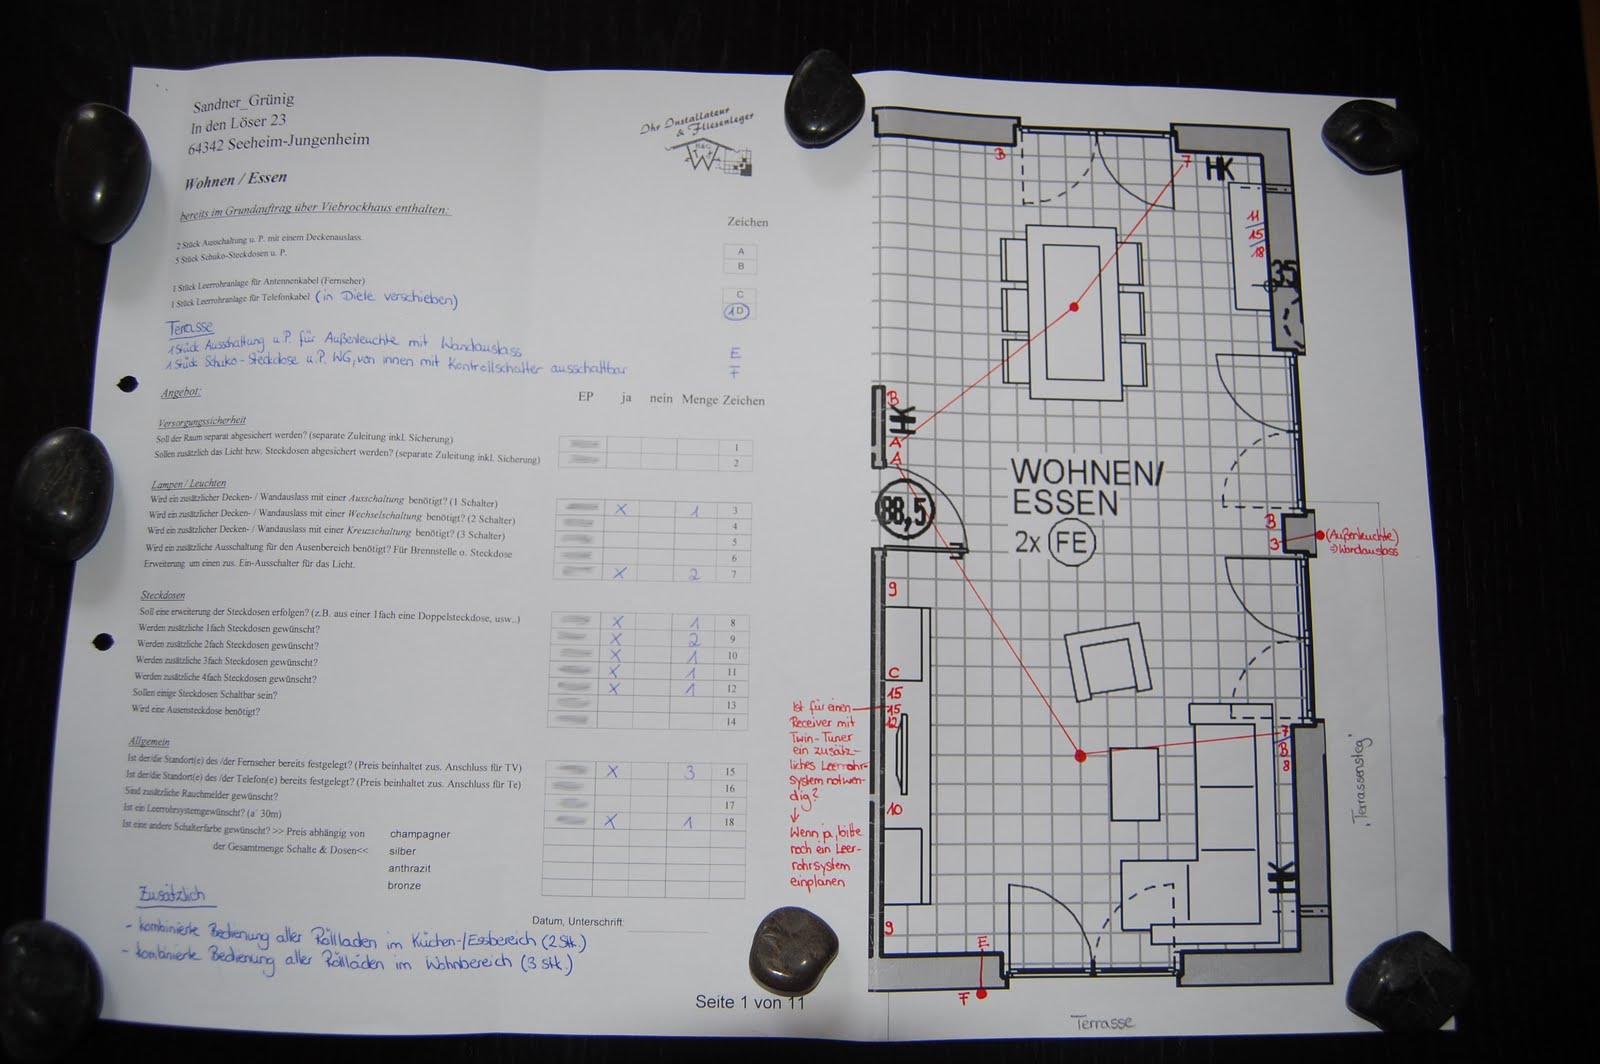 Sandner_Grünig
In den Löser 23
64342 Seeheim-Jungenheim
Ihr Installateur
& Fliesenleger
H&G
W
Wohnen / Essen
bereits im Grundauftrag über Viebrockhaus enthalten:
Zeichen
2 Stück Ausschaltung u. P. mit einem Deckenauslass. A
5 Stück Schuko-Steckdosen u. P. B
1 Stück Leerrohranlage für Antennenkabel (Fernseher) C
1 Stück Leerrohranlage für Telefonkabel (in Diele verschieben) 1D
Terrasse
1 Stück Ausschaltung u.P. für Außenleuchte mit Wandauslass E
1 Stück Schuko-Steckdose u.P. WG, von innen mit Kontrollschalter ausschaltbar F
Angebot: EP ja nein Menge Zeichen
Versorgungssicherheit
Soll der Raum separat abgesichert werden? (separate Zuleitung inkl. Sicherung) 1
Sollen zusätzlich das Licht bzw. Steckdosen abgesichert werden? (separate Zuleitung inkl. Sicherung) 2
Lampen / Leuchten
Wird ein zusätzlicher Decken- / Wandauslass mit einer Ausschaltung benötigt? (1 Schalter) X 1 3
Wird ein zusätzlicher Decken- / Wandauslass mit einer Wechselschaltung benötigt? (2 Schalter) 4
Wird ein zusätzlicher Decken- / Wandauslass mit einer Kreuzschaltung benötigt? (3 Schalter) 5
Wird ein zusätzliche Ausschaltung für den Ausenbereich benötigt? Für Brennstelle o. Steckdose 6
Erweiterung um einen zus. Ein-Ausschalter für das Licht. X 2 7
Steckdosen
Soll eine erweiterung der Steckdosen erfolgen? (z.B. aus einer 1fach eine Doppelsteckdose, usw..) X 1 8
Werden zusätzliche 1fach Steckdosen gewünscht? X 2 9
Werden zusätzliche 2fach Steckdosen gewünscht? X 1 10
Werden zusätzliche 3fach Steckdosen gewünscht? X 1 11
Werden zusätzliche 4fach Steckdosen gewünscht? X 1 12
Sollen einige Steckdosen Schaltbar sein? 13
Wird eine Ausensteckdose benötigt? 14
Allgemein
Ist der/die Standort(e) des /der Fernseher bereits festgelegt? (Preis beinhaltet zus. Anschluss für TV) X 3 15
Ist der/die Standort(e) des /der Telefon(e) bereits festgelegt? (Preis beinhaltet zus. Anschluss für Te) 16
Sind zusätzliche Rauchmelder gewünscht? 17
Ist ein Leerrohrsystemgewünscht? (a´ 30m) X 1 18
Ist eine andere Schalterfarbe gewünscht? >> Preis abhängig von champagner
der Gesamtmenge Schalte & Dosen<< silber
anthrazit
bronze
Zusätzlich
Datum, Unterschrift:
- kombinierte Bedienung aller Rolladen im Küchen-/Essbereich (2 Stk.)
- kombinierte Bedienung aller Rolläden im Wohnbereich (3 Stk.)
Seite 1 von 11
B
7
HK
11
15
18
35
B
HK
A
A
88,5
WOHNEN/
ESSEN
2x FE
B
3
(Außenleuchte)
⇒ Wandauslass
9
C
15
15
12
10
9
Ist für einen
Receiver mit
Twin-Tuner
ein zusätz-
liches Leerrohr-
system notwen-
dig?
↓
Wenn ja, bitte
noch ein Leer-
rohrsystem
einplanen
7
B
8
HK
E
F
'Terrassensteg'
Terrasse